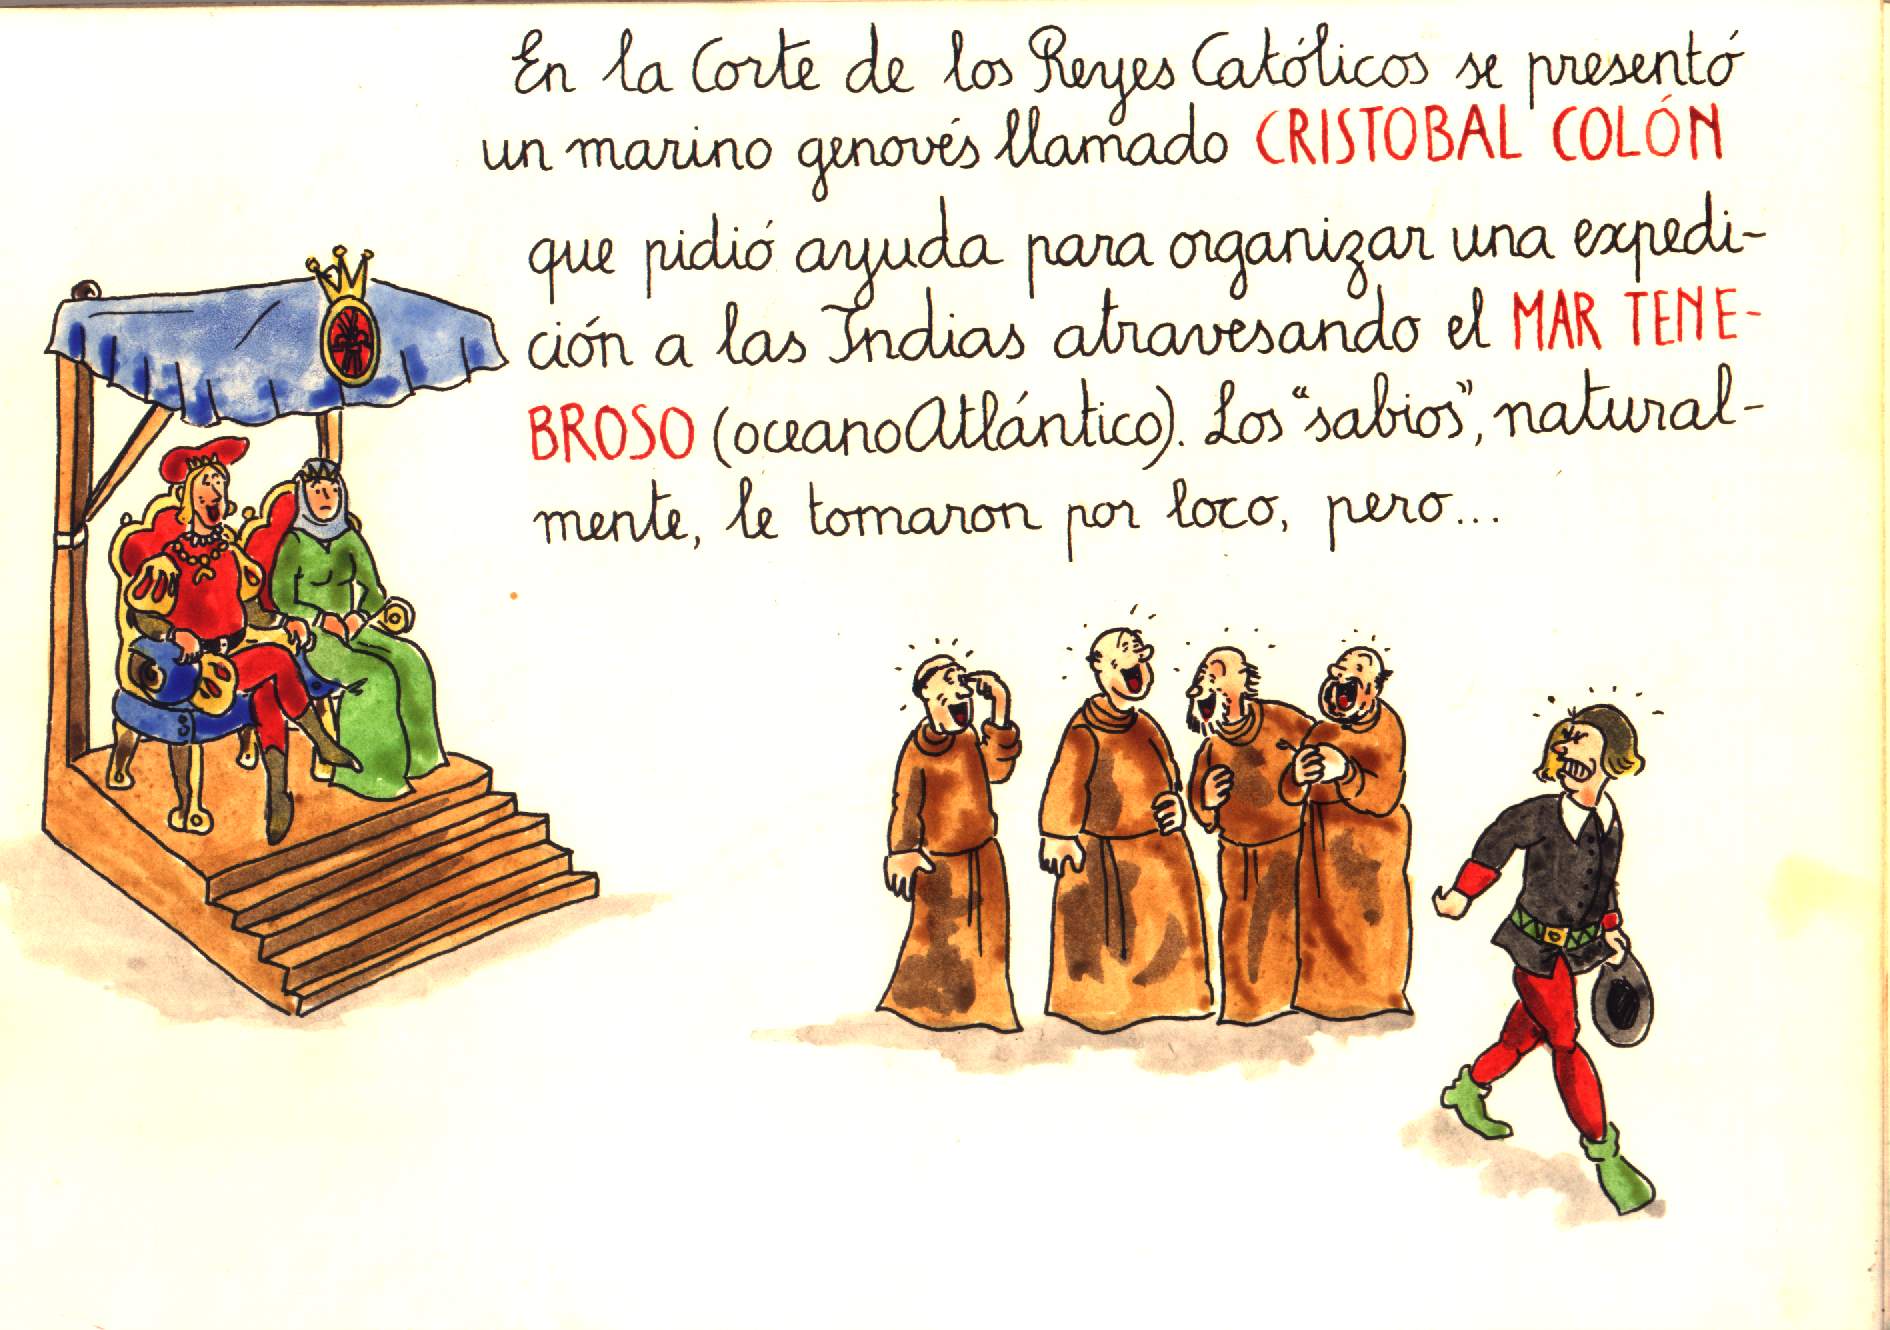 En la Corte de los Reyes Católicos se presentó
un marino genovés llamado CRISTOBAL COLÓN
que pidió ayuda para organizar una expedi-
ción a las Indias atravesando el MAR TENE-
BROSO (oceano Atlántico). Los "sabios", natural-
mente, le tomaron por loco, pero...